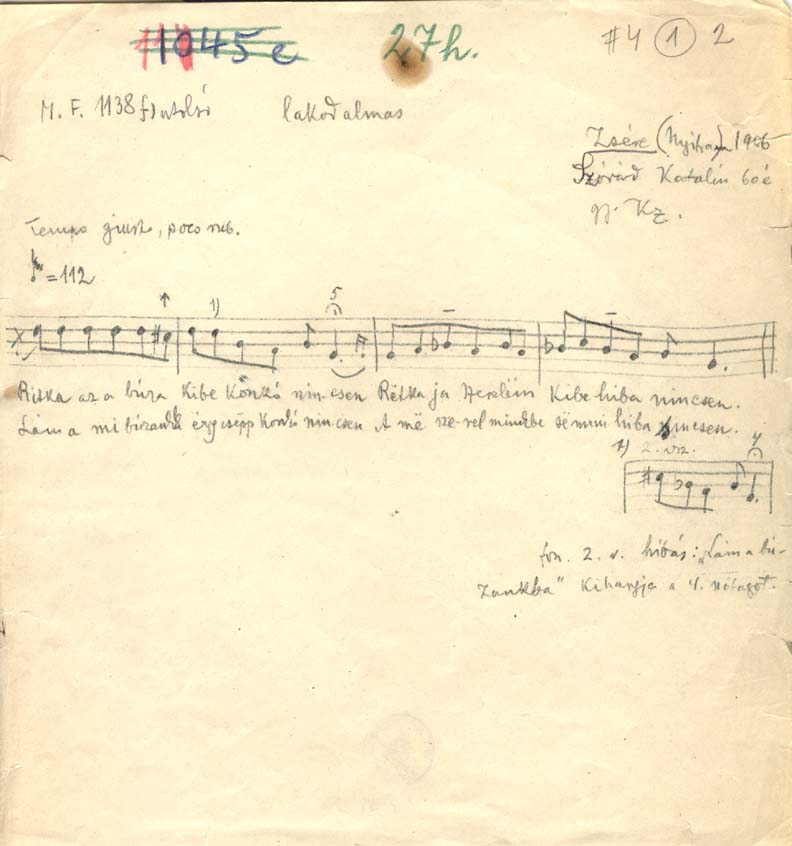 1045 e 27h. #4 1 2
M. F. 1138 f) utolsó lakodalmas
Zsére (Nyitra) 1906
Katalin 60é
gy. Kz.
Tempo giusto, poco rub.
=112
1) 5
Ritka az a búza Kibe Konkó nincsen Rëtka ja szerelëm Kibe hiba nincsen.
Lám a mi búzankba ëgy csëpp Konkó nincsen A më sze-rel mindbe sëmmi hiba nincsen.
1) 2. vsz. 4
fon. 2. v. hibás: „Lám a bú-
zankba" Kihagyja a 4. szótagot.